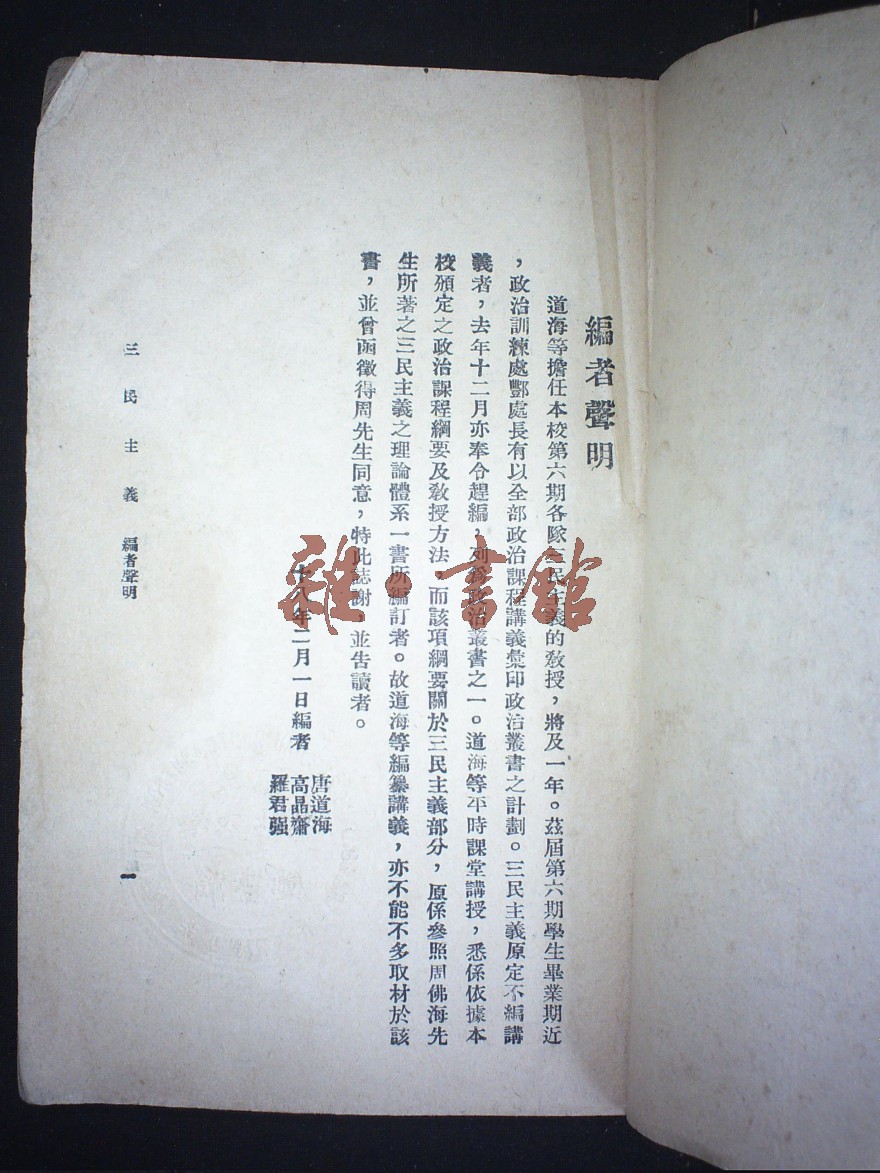 編者聲明
道海等擔任本校第六期各隊三民主義的敎授，將及一年。茲屆第六期學生畢業期近
，政治訓練處酆處長有以全部政治課程講義彙印政治叢書之計劃。三民主義原定不編講
義者，去年十二月亦奉令趕編，列為政治叢書之一。道海等平時課堂講授，悉係依據本
校頒定之政治課程綱要及敎授方法，而該項綱要關於三民主義部分，原係參照周佛海先
生所著之三民主義之理論體系一書所編訂者。故道海等編纂講義，亦不能不多取材於該
書，並曾函徵得周先生同意，特此誌謝，並告讀者。
十八年二月一日編者
唐道海
高晶齋
羅君强
三民主義 編者聲明
一
雜·書館